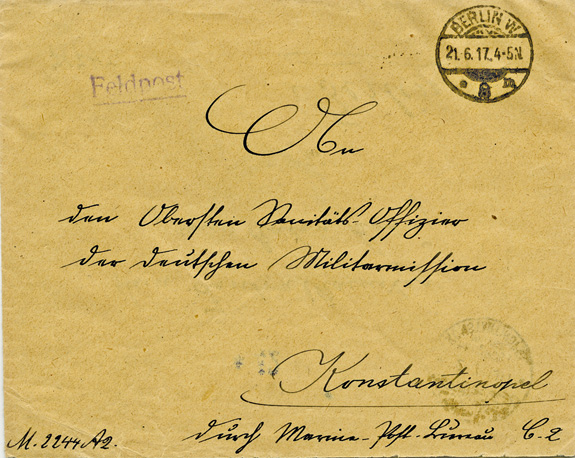 Feldpost
BERLIN W
21.6.17. 4-5N.
An
den Obersten Sanitäts-Offizier
der deutschen Militärmission
Konstantinopel
durch Marine-Post-Bureau C. 2
M. 2244 A2.